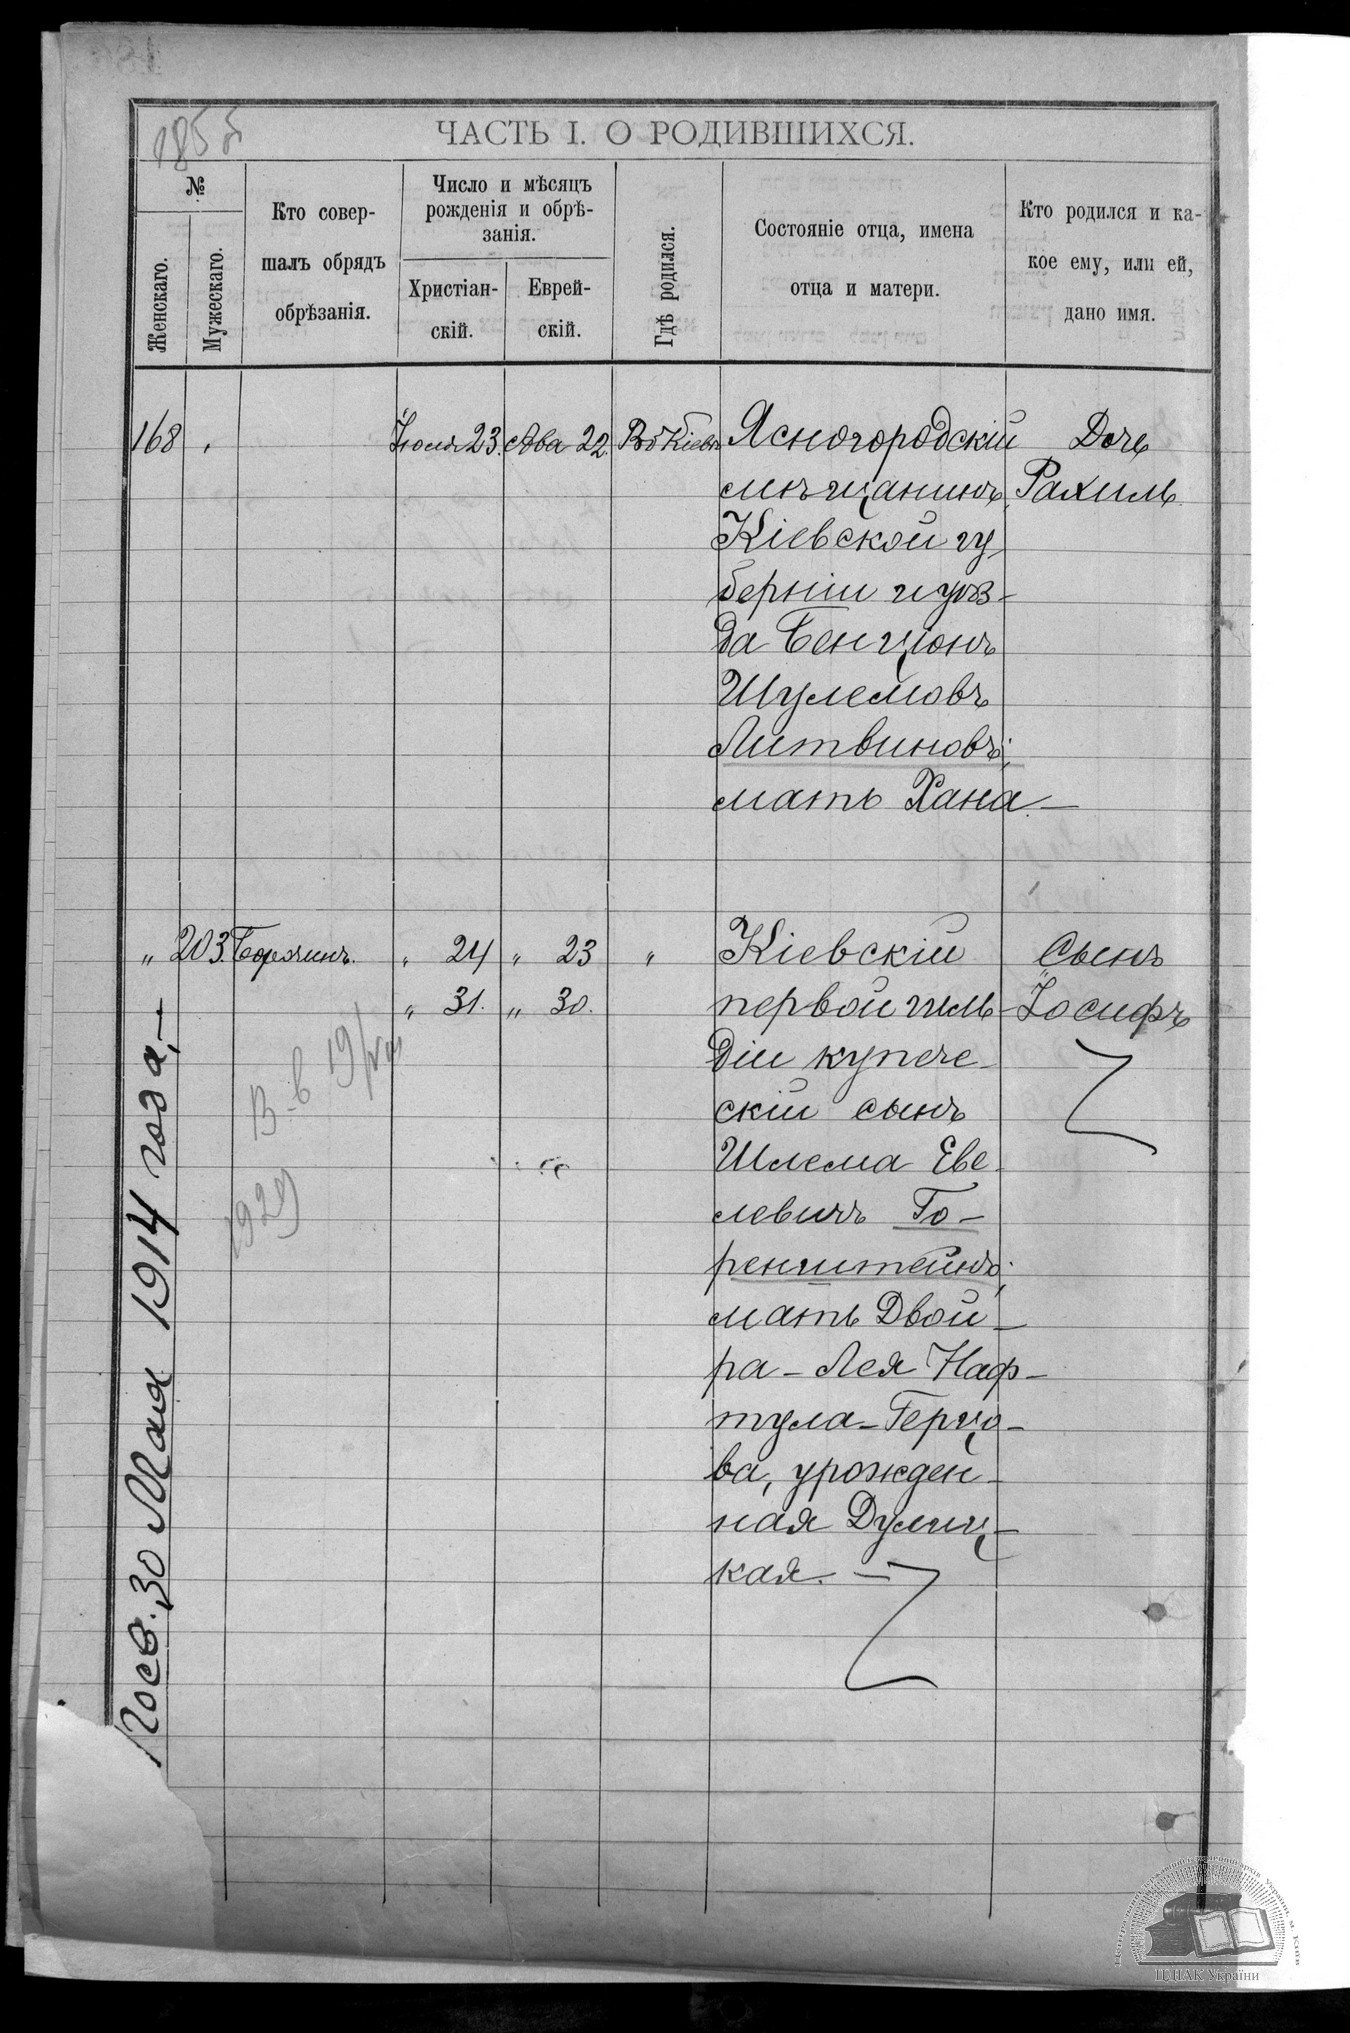 185
ЧАСТЬ I. О РОДИВШИХСЯ.
№
Женскаго.
Мужескаго.
Кто совер-
шалъ обрядъ
обрѣзанія.
Число и мѣсяцъ
рожденія и обрѣ-
занія.
Христіан-
скій.
Еврей-
скій.
Гдѣ родился.
Состояніе отца, имена
отца и матери.
Кто родился и ка-
кое ему, или ей,
дано имя.
168
Іюля 23.
Ава 22.
Въ Кіевѣ
Ясногородскій
мѣщанинъ
Кіевской гу-
берніи и уѣз-
да Бенціонъ
Шулемовъ
Литвиновъ;
мать Хана.—
Дочь
Рахиль.
„ 203.
„ 24
„ 31.
„ 23
„ 30.
„
Кіевскій
первой гиль-
діи купече-
скій сынъ
Шлема Еве-
левичъ Го-
ренштейнъ;
мать Двой-
ра-Лея Наф-
тула-Герцо-
ва, урожден-
ная Дулиц-
кая.—
Сынъ
Іосифъ
1929
30 Мая 1914 года,—
ЦДІАК України